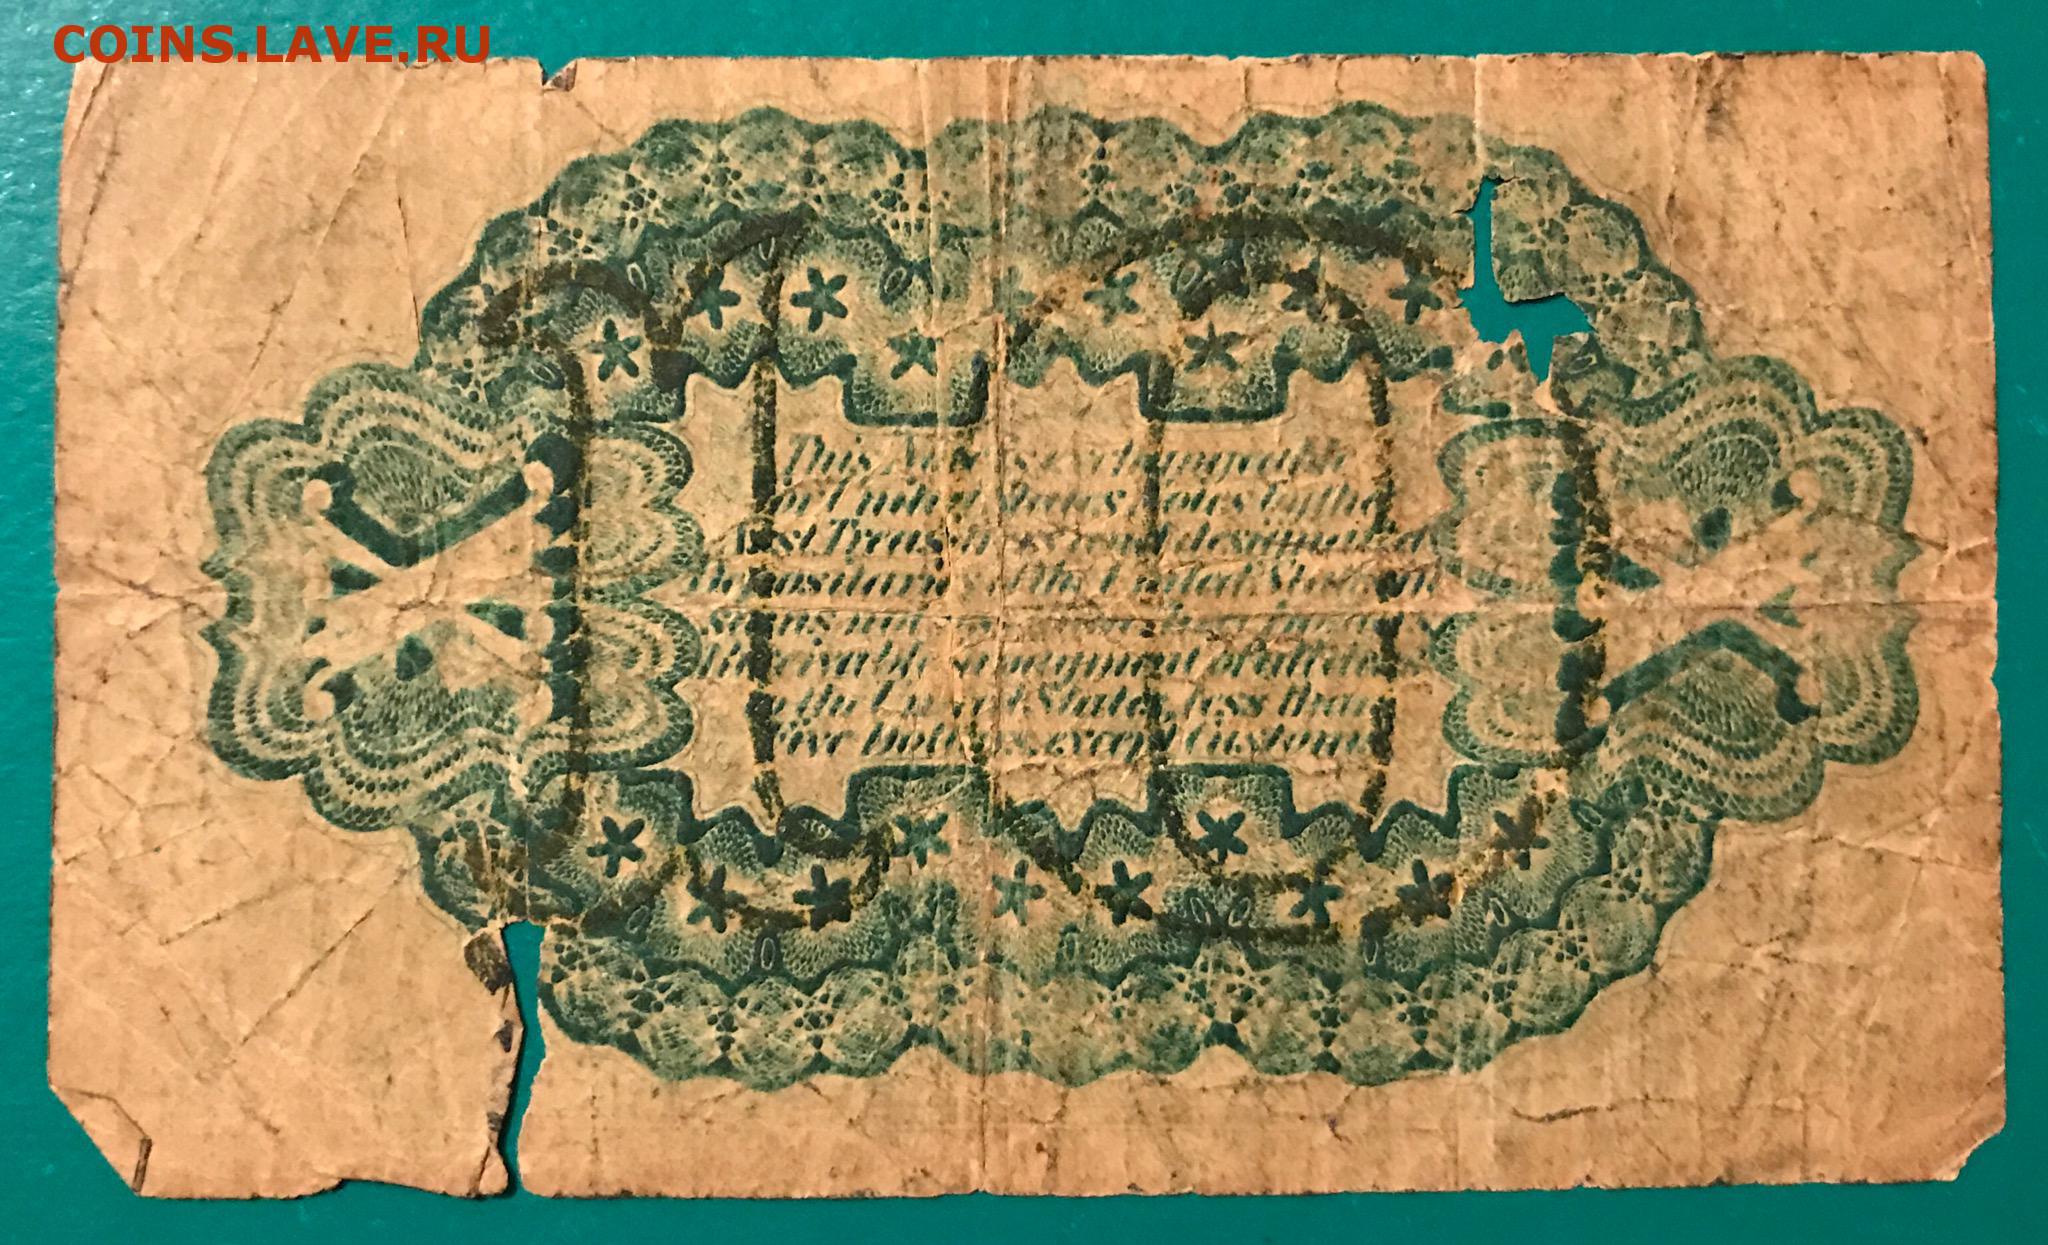 COINS.LAVE.RU
X X
This Note is exchangeable
for United States Notes by the
Asst. Treasurers and designated
Depositaries of the United States in
sums not less than
Receivable in payment of all dues
to the United States, less than
Five Dollars, except Customs.